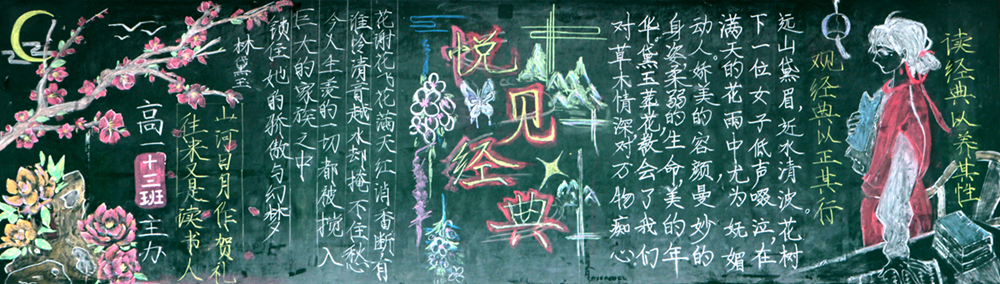 读经典以养其性
观经典以正其行
远山黛眉,近水清波。花树
下一位女子低声啜泣,在
满天的花雨中尤为妩媚
动人。娇美的容颜曼妙的
身姿柔弱的生命美的年
华黛玉葬花教会了我们
对草木情深对万物痴心
悦见经典
花谢花飞花满天红消香断有
谁冷清音越水却掩不住愁
令人生羡的一切都被揽入
巨大的家族之中
锁住她的骄傲与幻梦
林黛玉
山河日月作贺礼
往来又是读书人
高一十三班主办